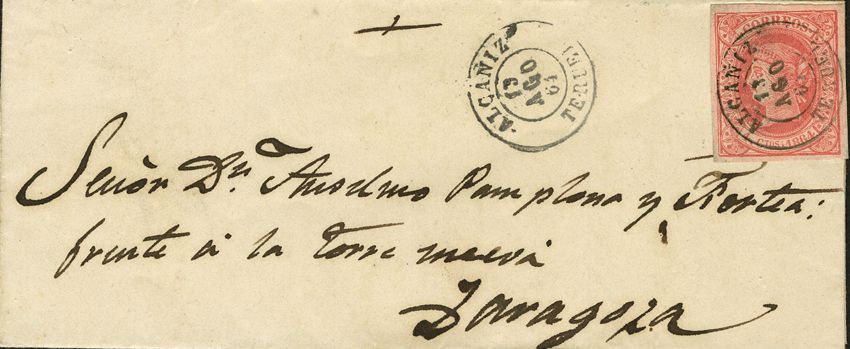 ALCAÑIZ TERUEL
13
AGO
64
CORREOS
ALCAÑIZ TERUEL
13
AGO
64
Señor Dn. Anselmo Pamplona y Fortea:
frente á la Torre nueva
Zaragoza